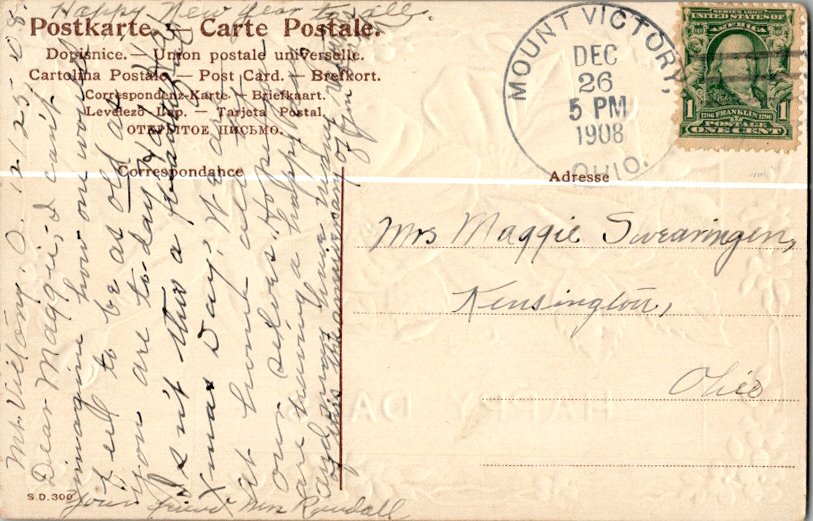 Happy New Year to all.
Postkarte. — Carte Postale.
Dopisnice. — Union postale universelle.
Cartolina Postale — Post Card. — Brefkort.
Correspondenz-Karte — Briefkaart.
Levelező-Lap. — Tarjeta Postal.
ОТКРЫТОЕ ПИСЬМО.
Correspondance
Adresse
MOUNT VICTORY,
DEC
26
5 PM
1908
OHIO.
SERIES 1902
UNITED STATES OF
AMERICA
1 1
1706 FRANKLIN 1790
POSTAGE
ONE CENT
Mrs Maggie Swearingen,
Kensington,
Ohio
Mt. Victory, O. 12/25-08.
Dear Maggie, I can't
immagine how one would
feel to be as old as
you are to-day
Isn't this a beautiful
Xmas Day? We are
at home all by
our selves. Hope you
are having a happy
and may you have many
of this the anniversary of
Your friend Mrs Randall
HAPPY DAYS
S.D. 300